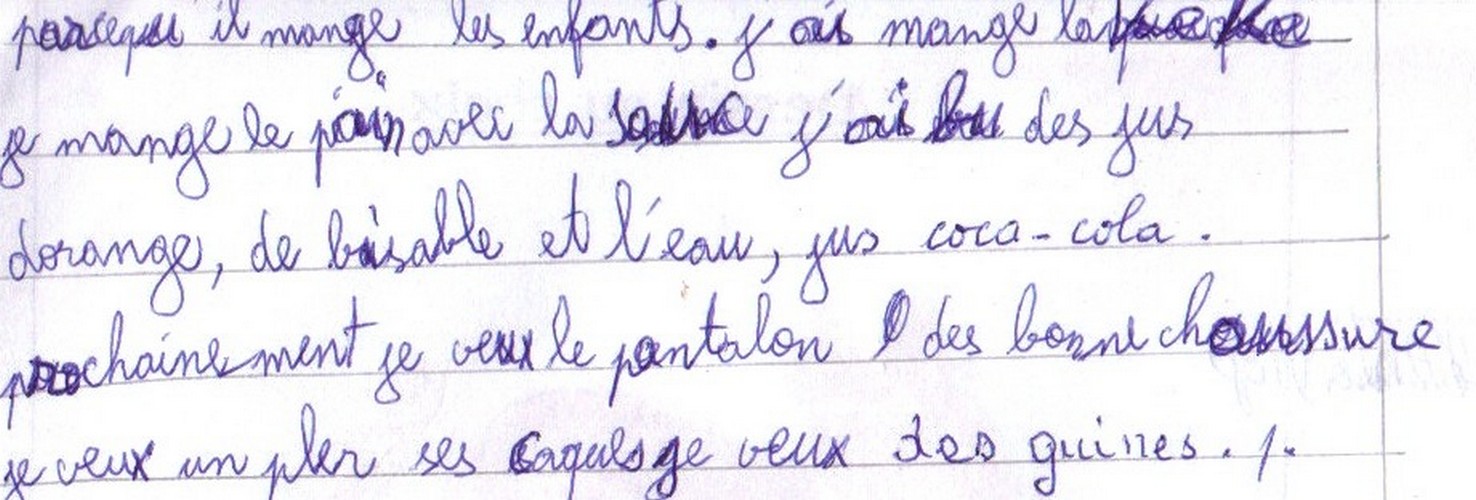 parcequ il mange les enfants. j ai mange la
je mange le pain avec la sauce j'ai bu des jus
dorange, de bisable et l'eau, jus coca-cola.
prochainement je veux le pantalon des bonne chaussure
je veux un pler ses je veux des guines.